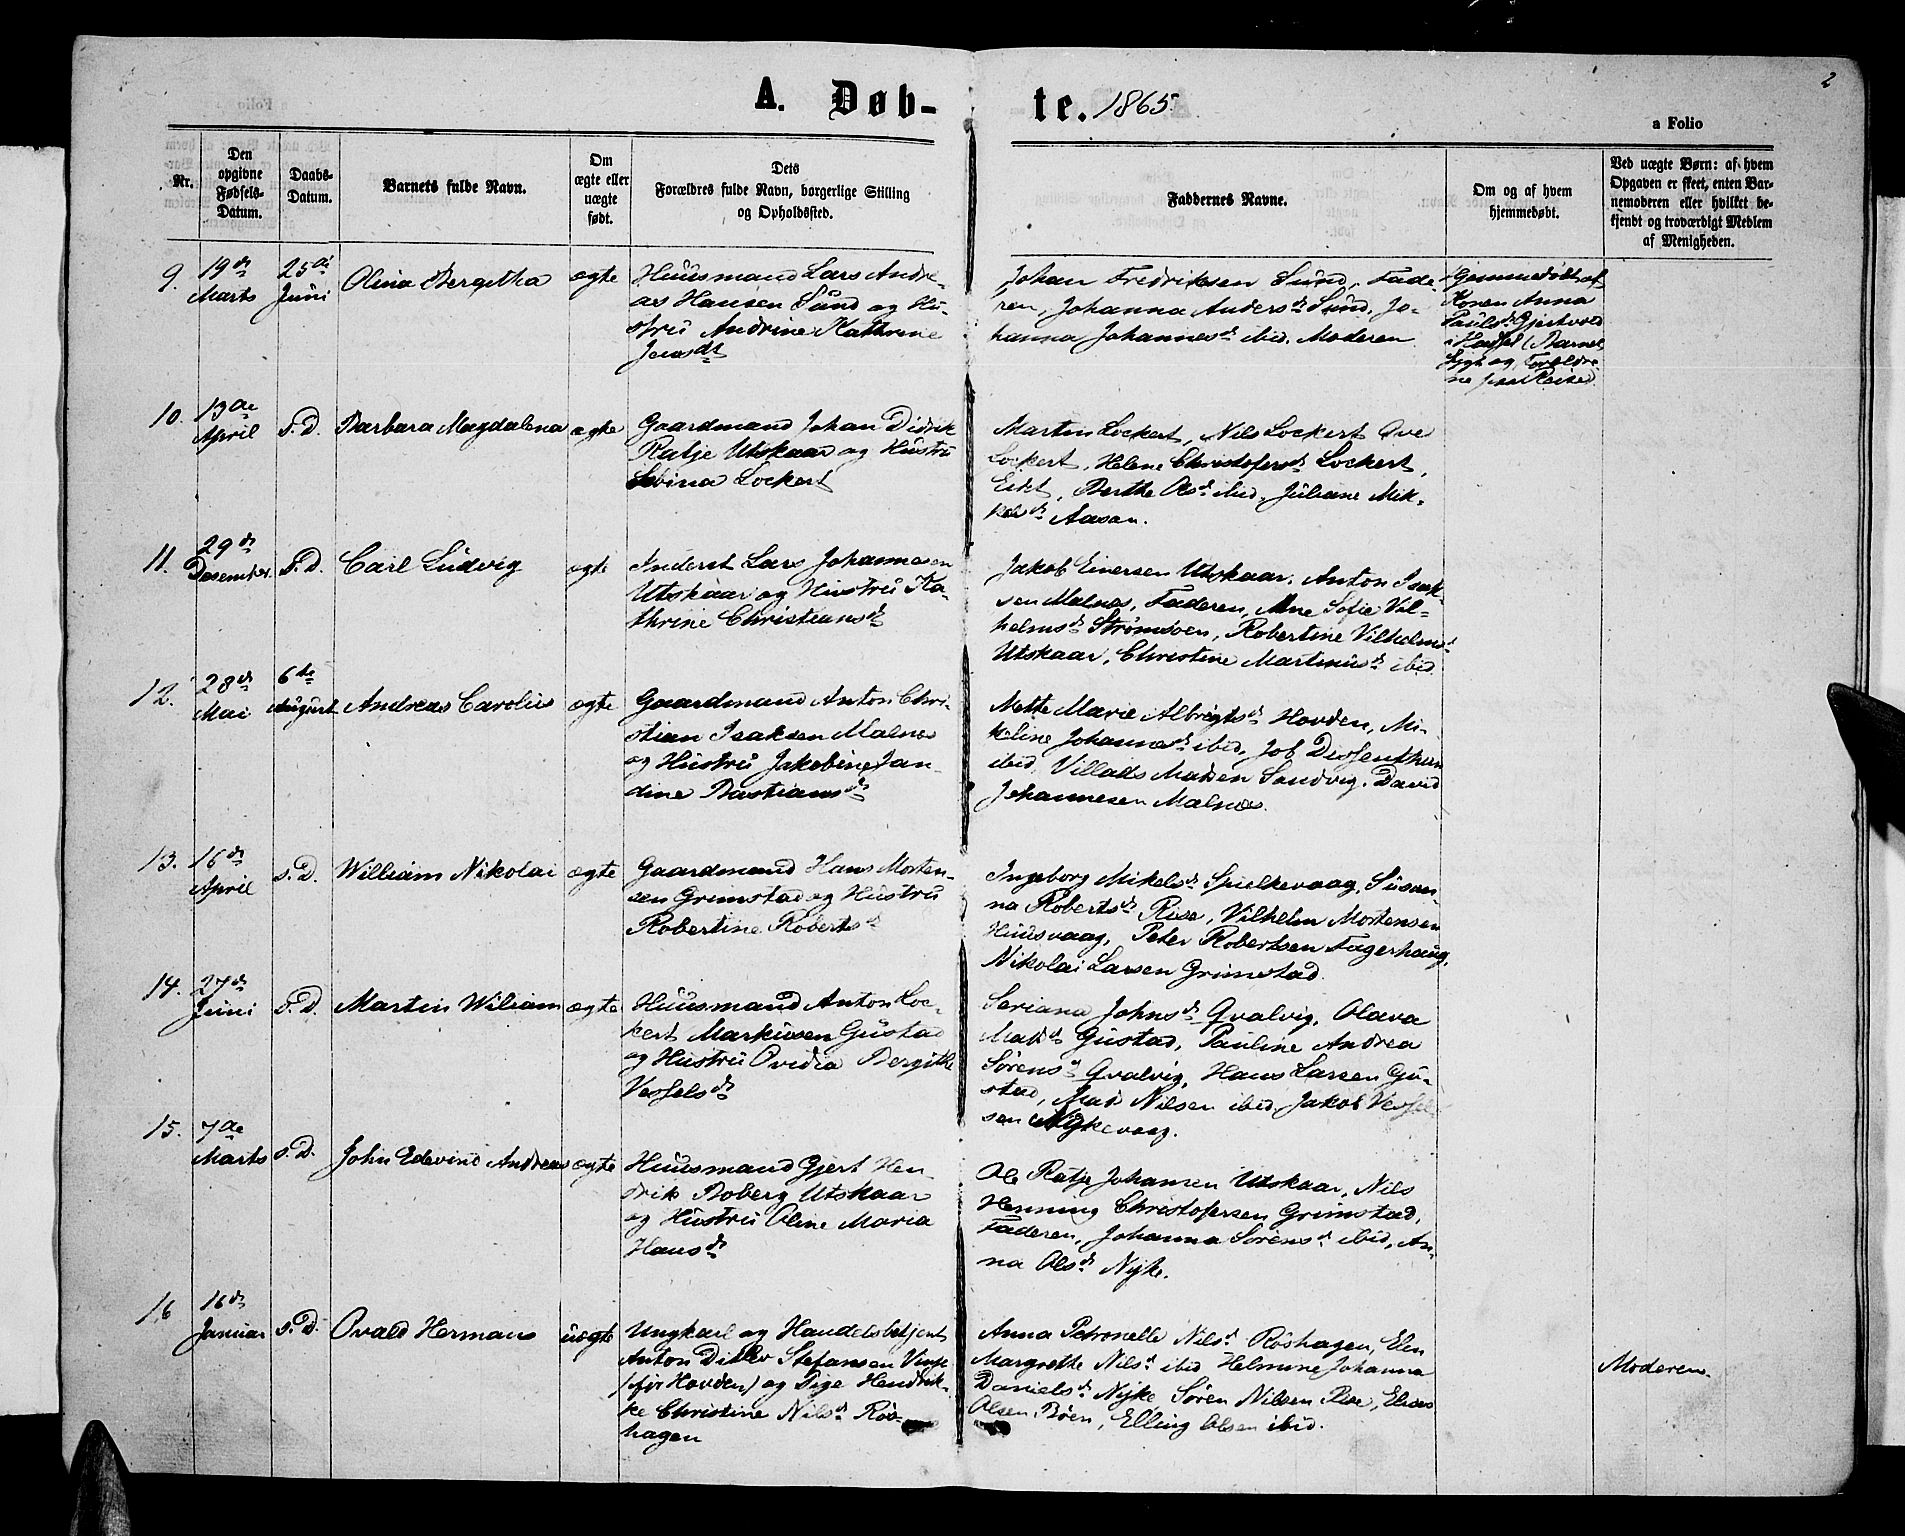 2
A. Døb-te. 1865.
a Folio
Nr.
Den opgivne Fødsels-Datum.
Daabs-Datum.
Barnets fulde Navn.
Om ægte eller uægte født.
Dets Forældres fulde Navn, borgerlige Stilling og Opholdssted.
Faddernes Navne.
Om og af hvem hjemmedøbt.
Ved uægte Børn: af hvem Opgaven er skeet, enten Barnemoderen eller hvilket bekjendt og troværdigt Medlem af Menigheden.
9. 19de Marts
25de Juni
Olina Bergitha
ægte
Huusmand Lars Andre-
as Hansen Sund og Hu-
stru Andrine Kathrine
Jensdt
Johan Fredriksen Sund, Fade-
ren, Johanna Andersd. Sund, Jo-
hanna Johannesd. ibid. Moderen
Hjemmedøbt af
Konen Anna
Paulsd. Gjertvold
i Hadsel (Barnet
sygt og Forældre-
ne paa Reise)
10. 13de April
s.D.
Barbara Magdalena
ægte
Gaardmand Johan Didrik
Ratje Utskaar og Hustru
Lovina Lockert
Martin Lockert, Nils Lockert Ove
Lockert, Helene Christofersd. Lockert,
Eidet, Berthe Olsd. ibid, Juliane Mik-
kelsd. Aasan.
11. 29de Desember
s.D.
Carl Ludvig
ægte
Inderst Lars Johannesen
Utskaar og Hustru Ka-
thrine Christiansd.
Jakob Einersen Utskaar, Anton Isak-
sen Malnes, Faderen, Ane Sofie Vil-
helmsd. Strømsøen, Robertine Vilhelmsd.
Utskaar, Christine Martinusd. ibid
12. 28de Mai
6te August
Andreas Carolius
ægte
Gaardmand Anton Chri-
stian Isaksen Malnes
og Hustru Jakobine Jan-
dine Bastiansd.
Mette Marie Albrigtsd. Hovden, Mi-
keline Johannesd. ibid, Job Dessenthun
ibid, Villads Madsen Sandvig, David
Johannesen Malnes.
13. 16de April
s.D.
William Nikolai
ægte
Gaardmand Hans Morten-
sen Grimstad og Hustru
Robertine Robertsd.
Ingeborg Mikelsd. Spielkevaag, Susan-
na Robertsd. Rise, Vilhelm Mortensen
Huusvaag, Peter Robertsen Fagerhaug,
Nikolai Larsen Grimstad.
14. 27de Juni
s.D.
Martin Wiliam
ægte
Huusmand Anton Loc-
kert Markusen Gustad
og Hustru Ovidia Bergithe
Vesselsd.
Seriana Johnsd. Qvalvig, Olava
Madsd. Gustad, Pauline Andrea
Sørensd. Qvalvig, Hans Larsen Gu-
stad, Mads Nilsen ibid, Jakob Vessel-
sen Nykevaag.
15. 7de Marts
s.D.
John Edevind Andreas
ægte
Huusmand Gjert Hen-
drik Boberg Utskaar
og Hustru Oline Maria
Hansd.
Ole Ratje Johansen Utskaar, Nils
Henning Christofersen Grimstad,
Faderen, Johanna Sørensd. ibid, An-
na Olsd. Nyke.
16 16de Januar
s.D.
Ovald Hermans
uægte
Ungkarl og Handelsbetjent
Anton Ditlev Stefansen Vinje
(før Hovden) og Pige Hendrik-
ke Christine Nilsd. Røs-
hagen
Anna Petronelle Nilsd. Røshagen, Elen
Margrethe Nilsd. ibid Helmine Johanna
Danielsd. Nyke, Søren Nilsen Rise, Elias
Olsen Bøen, Elling Olsen ibid.
Moderen.